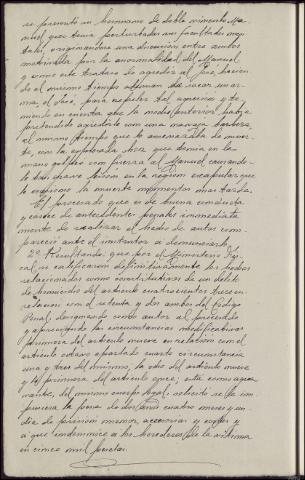 se presentó su hermano de doble vinculo Ma-
nuel que tenia perturbadas sus facultades men-
tales, originandose una discusión entre ambos
motivada por la anormalidad del Manuel
y como este tratara de agredir al José, hacien-
do al mismo tiempo ademan de sacar un ar-
ma, el José, para repeler tal agresion y te-
niendo en cuenta que la noche anterior habia
pretendido agredirle con una navaja
al mismo tiempo que le amenazaba de muer-
te, con la hoz que tenia en la
mano golpeó con fuerza al Manuel causando-
le tan grave lesion en la region escapular que
le ocasionó la muerte momentos mas tarde.
El procesado que es de buena conducta
y carece de antecedentes penales inmediata-
mente de realizar el hecho de autos com-
pareció ante el instructor a denunciarlo.
2º Resultando: que por el Ministerio Fis-
cal se calificaron definitivamente los hechos
relacionados como constitutivos de un delito
de homicidio del articulo cuatrocientos trece en
relacion con el setenta y dos ambos del Codigo
Penal, designando como autor al procesado
y apreciando las circunstancias modificativas
primera del articulo nueve en relacion con el
articulo octavo apartado cuarto circunstancia
una y tres del mismo, la ocho del articulo nueve
y la primera del articulo once, esta como agra-
vante, del mismo cuerpo legal; solicitó se le im-
pusiera la pena de dos años cuatro meses y un
dia de prision menor, accesorias y costas y
a que indemnice a los herederos de la victima
en cinco mil pesetas.